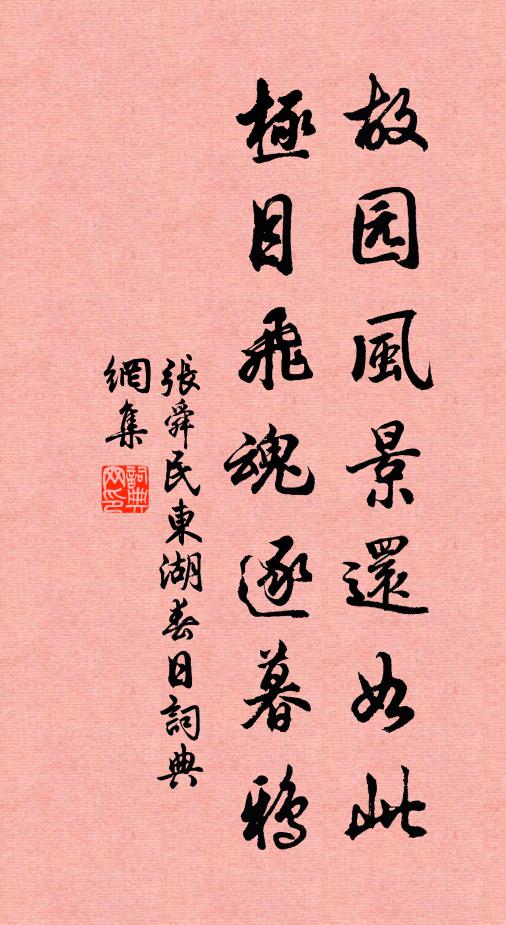 故园風景還如此
極目飛魂逐暮鴉
張舜民東湖春日詞典
網集
詞典
网印